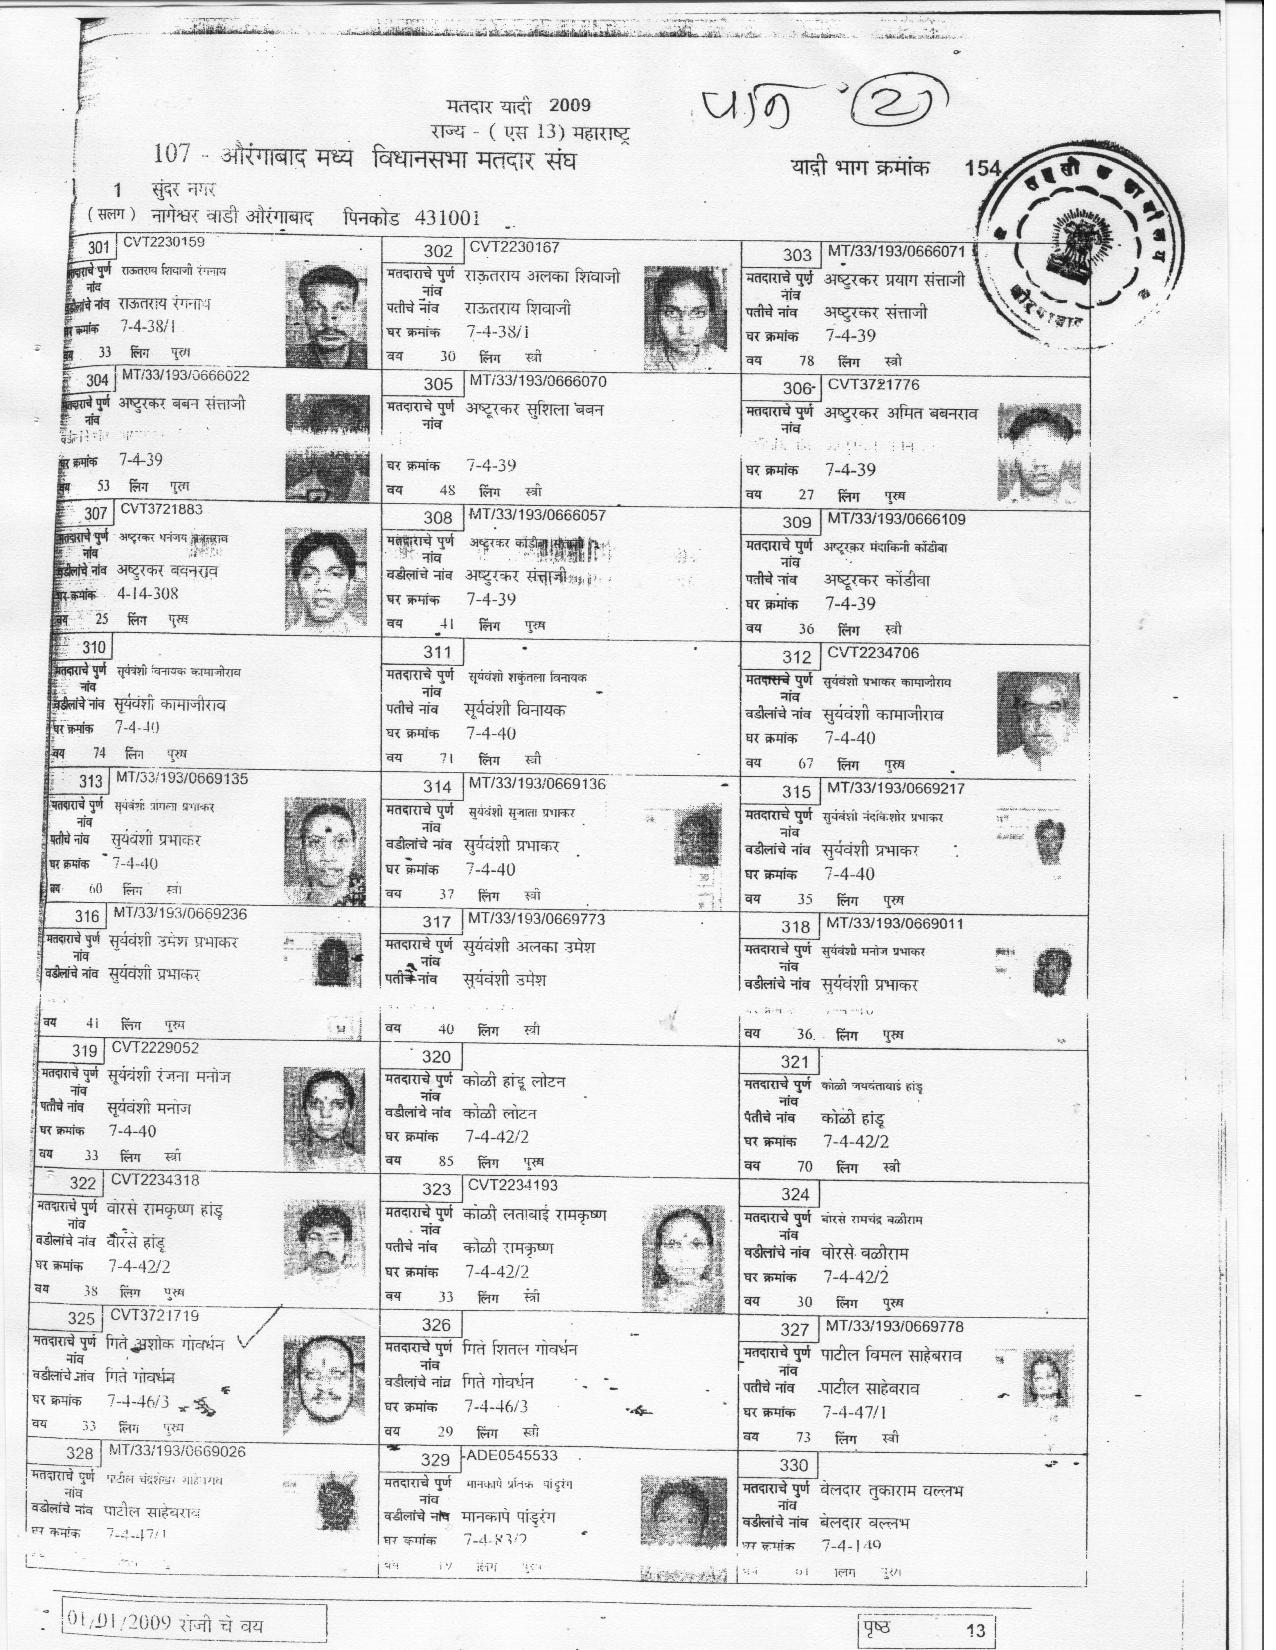 पान (2)
मतदार यादी 2009
राज्य - ( एस 13) महाराष्ट्र
107 - औरंगाबाद मध्य विधानसभा मतदार संघ
यादी भाग क्रमांक 154
1 सुंदर नगर
( सलग ) नागेश्वर वाडी औरंगाबाद पिनकोड 431001
301 CVT2230159
मतदाराचे पुर्ण नांव राऊतराय शिवाजी रंगनाथ
वडीलांचे नांव राऊतराय रंगनाथ
घर क्रमांक 7-4-38/1
वय 33 लिंग पुरुष
302 CVT2230167
मतदाराचे पुर्ण नांव राऊतराय अलका शिवाजी
पतीचे नांव राऊतराय शिवाजी
घर क्रमांक 7-4-38/1
वय 30 लिंग स्त्री
303 MT/33/193/0666071
मतदाराचे पुर्ण नांव अष्टुरकर प्रयाग संत्ताजी
पतीचे नांव अष्टुरकर संत्ताजी
घर क्रमांक 7-4-39
वय 78 लिंग स्त्री
304 MT/33/193/0666022
मतदाराचे पुर्ण नांव अष्टुरकर बबन संत्ताजी
घर क्रमांक 7-4-39
वय 53 लिंग पुरुष
305 MT/33/193/0666070
मतदाराचे पुर्ण नांव अष्टूरकर सुशिला बबन
घर क्रमांक 7-4-39
वय 48 लिंग स्त्री
306 CVT3721776
मतदाराचे पुर्ण नांव अष्टुरकर अमित बबनराव
घर क्रमांक 7-4-39
वय 27 लिंग पुरुष
307 CVT3721883
मतदाराचे पुर्ण नांव अष्टुरकर धनंजय बबनराव
वडीलांचे नांव अष्टुरकर बबनराव
घर क्रमांक 4-14-308
वय 25 लिंग पुरुष
308 MT/33/193/0666057
मतदाराचे पुर्ण नांव अष्टूरकर कोंडीबा
वडीलांचे नांव अष्टुरकर संत्ताजी
घर क्रमांक 7-4-39
वय 41 लिंग पुरुष
309 MT/33/193/0666109
मतदाराचे पुर्ण नांव अष्टूरकर मंदाकिनी कोंडीबा
पतीचे नांव अष्टूरकर कोंडीबा
घर क्रमांक 7-4-39
वय 36 लिंग स्त्री
310
मतदाराचे पुर्ण नांव सुर्यवंशी विनायक कामाजीराव
वडीलांचे नांव सूर्यवंशी कामाजीराव
घर क्रमांक 7-4-40
वय 74 लिंग पुरुष
311
मतदाराचे पुर्ण नांव सूर्यवंशी शकुंतला विनायक
पतीचे नांव सूर्यवंशी विनायक
घर क्रमांक 7-4-40
वय 71 लिंग स्त्री
312 CVT2234706
मतदाराचे पुर्ण नांव सुर्यवंशी प्रभाकर कामाजीराव
वडीलांचे नांव सुर्यवंशी कामाजीराव
घर क्रमांक 7-4-40
वय 67 लिंग पुरुष
313 MT/33/193/0669135
मतदाराचे पुर्ण नांव सुर्यवंशी प्रभाकर
पतीचे नांव सुर्यवंशी प्रभाकर
घर क्रमांक 7-4-40
वय 60 लिंग स्त्री
314 MT/33/193/0669136
मतदाराचे पुर्ण नांव सुर्यवंशी सुजाता प्रभाकर
वडीलांचे नांव सुर्यवंशी प्रभाकर
घर क्रमांक 7-4-40
वय 37 लिंग स्त्री
315 MT/33/193/0669217
मतदाराचे पुर्ण नांव सुर्यवंशी नंदकिशोर प्रभाकर
वडीलांचे नांव सुर्यवंशी प्रभाकर
घर क्रमांक 7-4-40
वय 35 लिंग पुरुष
316 MT/33/193/0669236
मतदाराचे पुर्ण नांव सुर्यवंशी उमेश प्रभाकर
वडीलांचे नांव सुर्यवंशी प्रभाकर
वय 41 लिंग पुरुष
317 MT/33/193/0669773
मतदाराचे पुर्ण नांव सुर्यवंशी अलका उमेश
पतीचे नांव सुर्यवंशी उमेश
वय 40 लिंग स्त्री
318 MT/33/193/0669011
मतदाराचे पुर्ण नांव सुर्यवंशी मनोज प्रभाकर
वडीलांचे नांव सुर्यवंशी प्रभाकर
वय 36 लिंग पुरुष
319 CVT2229052
मतदाराचे पुर्ण नांव सूर्यवंशी रंजना मनोज
पतीचे नांव सूर्यवंशी मनोज
घर क्रमांक 7-4-40
वय 33 लिंग स्त्री
320
मतदाराचे पुर्ण नांव कोळी हांडू लोटन
वडीलांचे नांव कोळी लोटन
घर क्रमांक 7-4-42/2
वय 85 लिंग पुरुष
321
मतदाराचे पुर्ण नांव कोळी जयवंताबाई हांडू
पतीचे नांव कोळी हांडू
घर क्रमांक 7-4-42/2
वय 70 लिंग स्त्री
322 CVT2234318
मतदाराचे पुर्ण नांव वोरसे रामकृष्ण हांडू
वडीलांचे नांव वोरसे हांडू
घर क्रमांक 7-4-42/2
वय 38 लिंग पुरुष
323 CVT2234193
मतदाराचे पुर्ण नांव कोळी लताबाई रामकृष्ण
पतीचे नांव कोळी रामकृष्ण
घर क्रमांक 7-4-42/2
वय 33 लिंग स्त्री
324
मतदाराचे पुर्ण नांव बोरसे रामचंद्र बळीराम
वडीलांचे नांव वोरसे वळीराम
घर क्रमांक 7-4-42/2
वय 30 लिंग पुरुष
325 CVT3721719
मतदाराचे पुर्ण नांव गिते अशोक गोवर्धन
वडीलांचे नांव गिते गोवर्धन
घर क्रमांक 7-4-46/3
वय 33 लिंग पुरुष
326
मतदाराचे पुर्ण नांव गिते शितल गोवर्धन
वडीलांचे नांव गिते गोवर्धन
घर क्रमांक 7-4-46/3
वय 29 लिंग स्त्री
327 MT/33/193/0669778
मतदाराचे पुर्ण नांव पाटील विमल साहेबराव
पतीचे नांव पाटील साहेबराव
घर क्रमांक 7-4-47/1
वय 73 लिंग स्त्री
328 MT/33/193/0669026
मतदाराचे पुर्ण नांव पाटील चंद्रशेखर साहेबराव
वडीलांचे नांव पाटील साहेबराव
घर क्रमांक 7-4-47/1
329 ADE0545533
मतदाराचे पुर्ण नांव मानकापे पांडुरंग
वडीलांचे नांव मानकापे पांडुरंग
घर क्रमांक 7-4-83/2
330
मतदाराचे पुर्ण नांव वेलदार तुकाराम वल्लभ
वडीलांचे नांव बेलदार वल्लभ
घर क्रमांक 7-4-149
वय 61 लिंग पुरुष
01/01/2009 रोजी चे वय
पृष्ठ 13